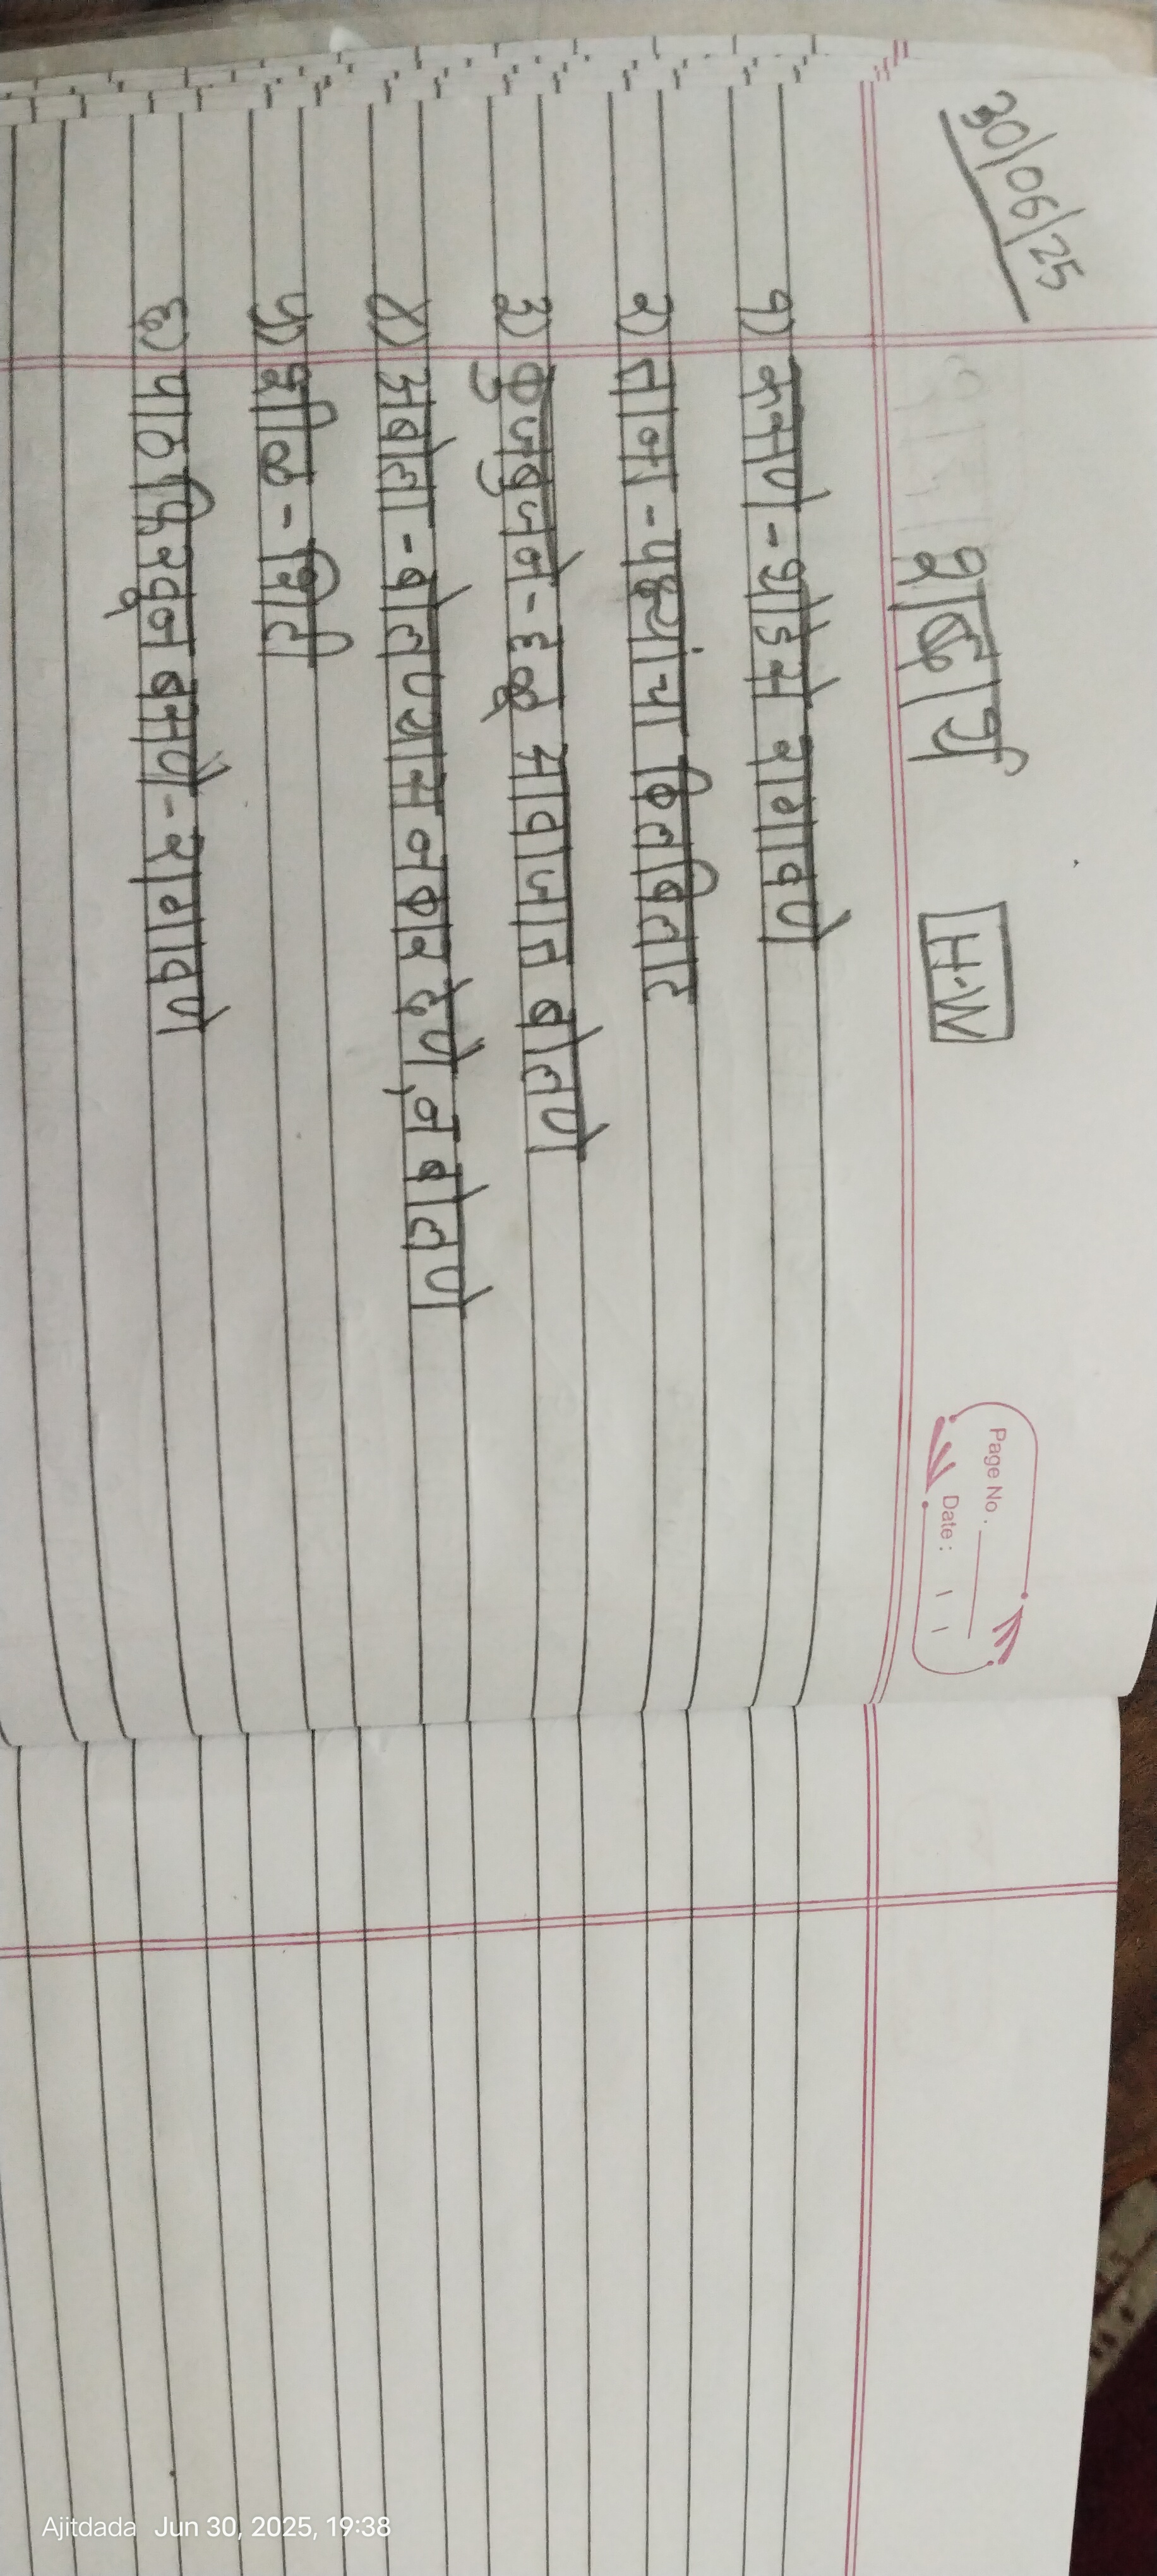 30/06/25
शब्दार्थ H.W
१) रुसणे - थोडेसे रागावणे
२) ताना - पक्ष्यांचा किलबिलाट
३) कुजबुजने - हळू आवाजात बोलणे
४) अबोला - बोलण्यास नकार देणे, न बोलणे
५) शीळ - शिटी
६) पाठ फिरवून बसणे - रागावणे
Page No.
Date :
Ajitdada Jun 30, 2025, 19:38